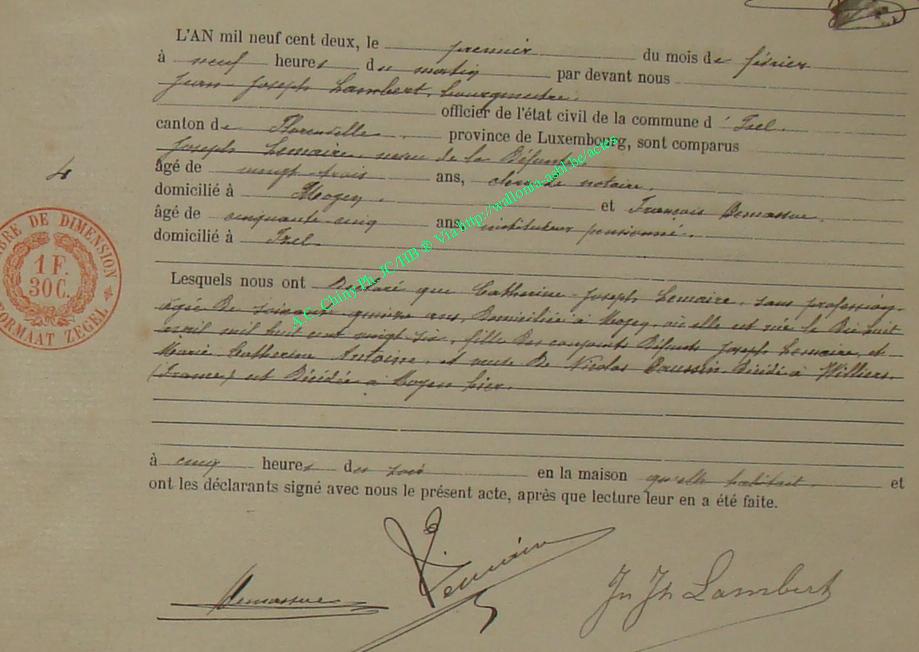 L'AN mil neuf cent deux, le premier du mois de février
à neuf heures du matin par devant nous
Jean Joseph Lambert, bourgmestre
officier de l'état civil de la commune d' Izel
canton de Florenville province de Luxembourg, sont comparus
Joseph Lemaire, neveu de la Défunte
âgé de vingt trois ans, clerc de notaire,
domicilié à Moyen et François Demassue,
âgé de cinquante cinq ans instituteur pensionné,
domicilié à Izel
4
TIMBRE DE DIMENSION
1 F.
30 C.
FORMAAT ZEGEL
Lesquels nous ont Déclaré que Catherine-Joseph Lemaire, sans profession,
âgée De soixante quinze ans, Domiciliée à Moyen, où elle est née le Dix huit
avril mil huit cent vingt six, fille Des conjoints Défunts Joseph Lemaire, et
Marie Catherine Antoine, et veuve De Nicolas Daussin Décédé à Williers
(France) est Décédée à Moyen hier.
à cinq heures du soir en la maison qu'elle habitait et
ont les déclarants signé avec nous le présent acte, après que lecture leur en a été faite.
Demassue
Lemaire
Jn Jh Lambert
A.C. Chiny Ph. JC/HB ® Via http://wallonia-asbl.be/actes